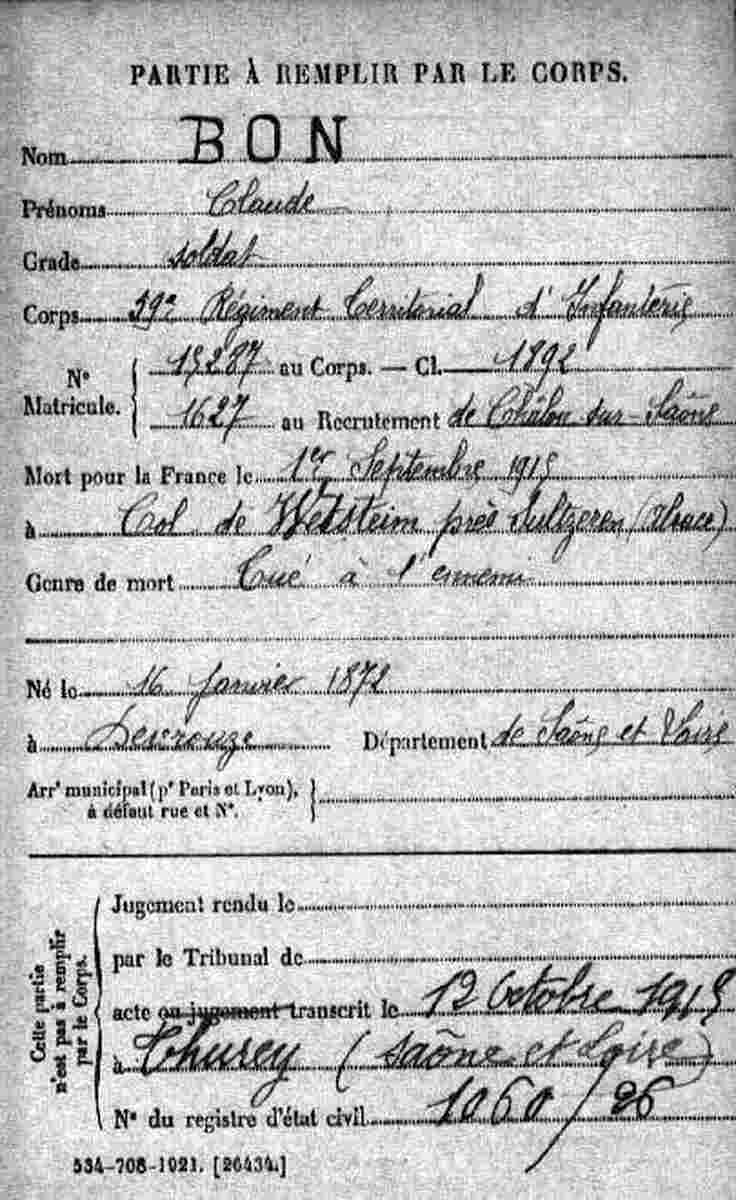 PARTIE À REMPLIR PAR LE CORPS.
Nom BON
Prénoms Claude
Grade soldat
Corps 59e Régiment Territorial d'Infanterie
N° Matricule. { 15287 au Corps. — Cl. 1892
1627 au Recrutement de Châlon sur-Saône
Mort pour la France le 1er Septembre 1915
à Col de Wetsteim près Sultzeren (Alsace)
Genre de mort Tué à l'ennemi
Né le 16 Janvier 1872
à Devrouze Département de Saône et Loire
Arrt municipal (pr Paris et Lyon), }
à défaut rue et N°.
Cette partie n'est pas à remplir par le Corps. {
Jugement rendu le
par le Tribunal de
acte ou jugement transcrit le 12 Octobre 1915
à Thurey (Saône et Loire)
N° du registre d'état civil 1060/26
534-708-1921. [26434.]